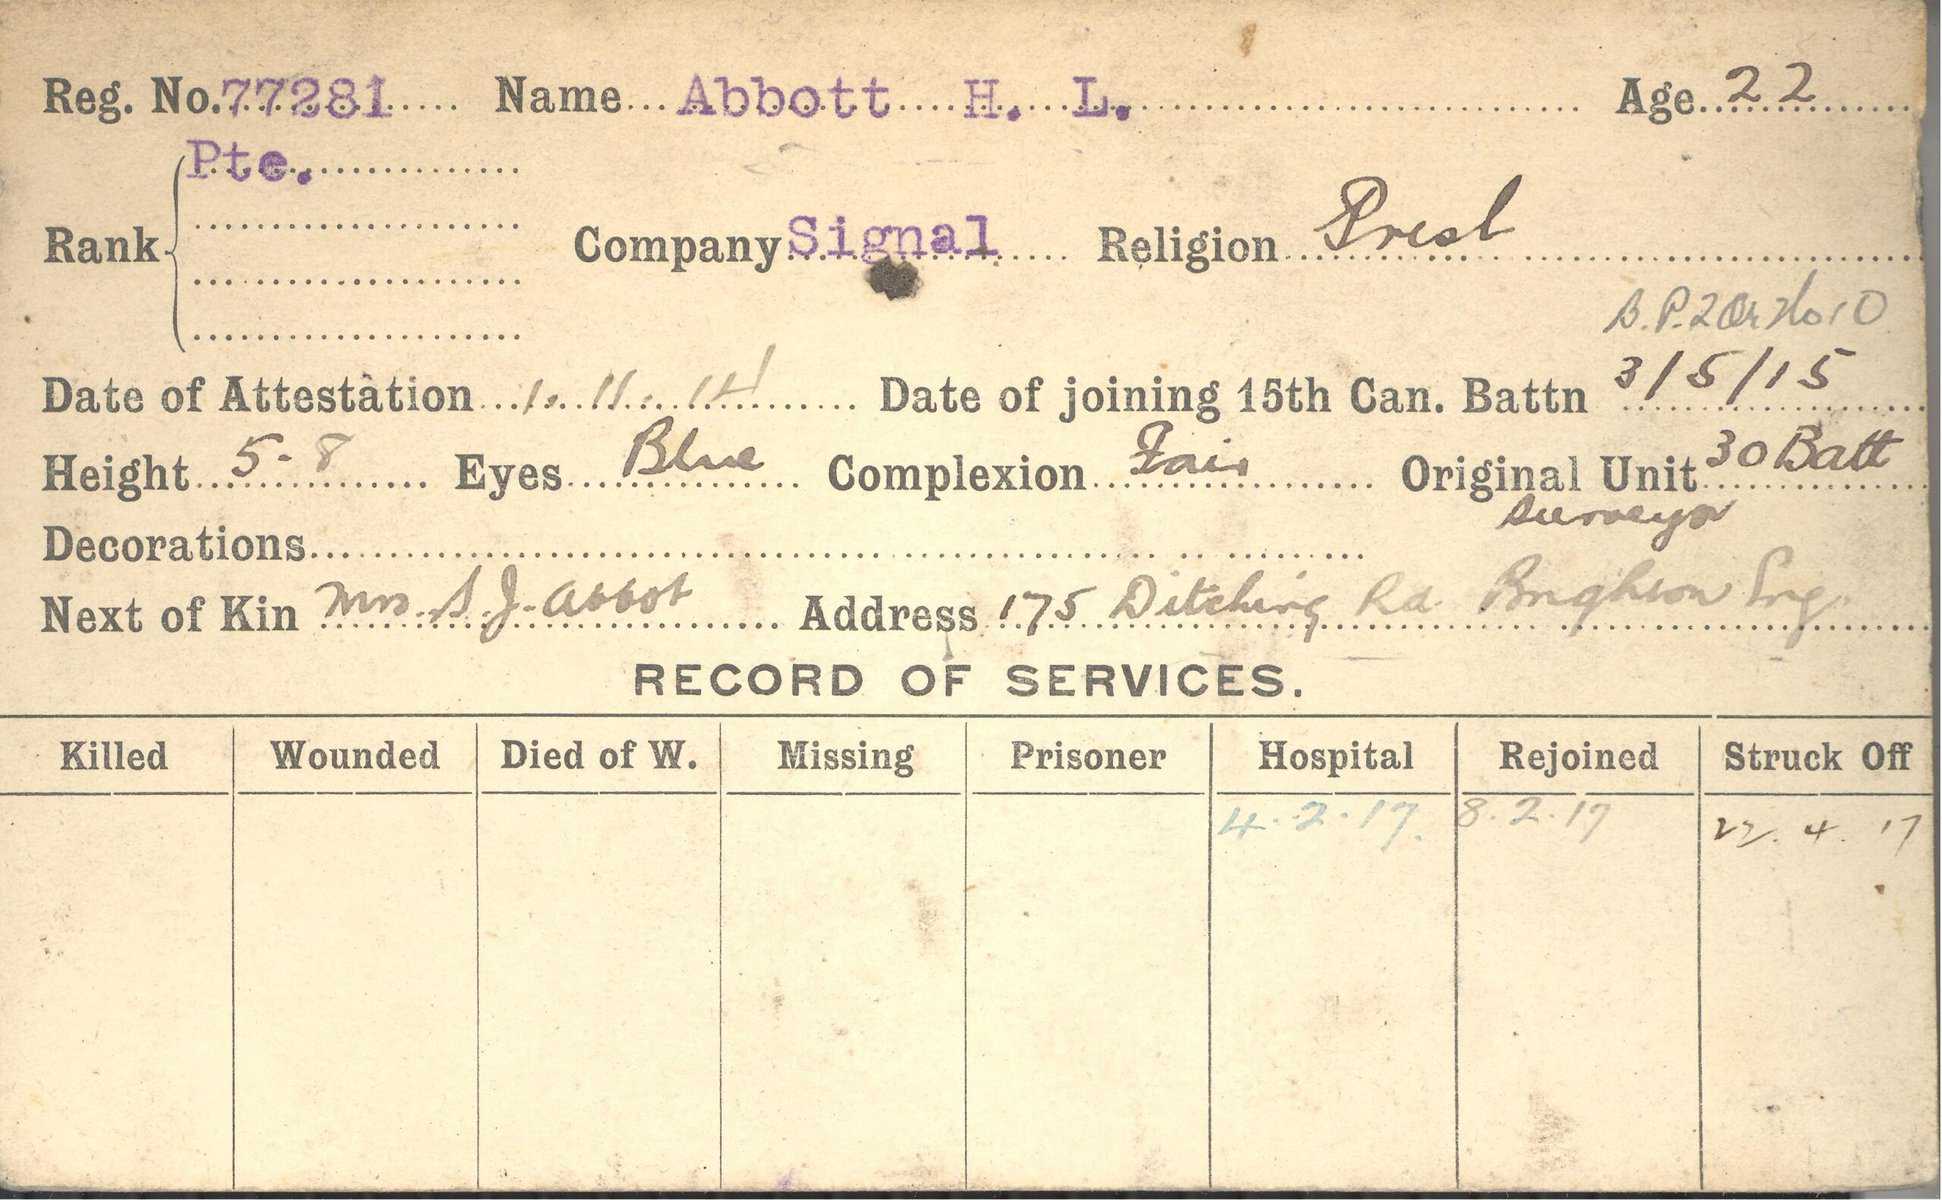 Reg. No. 77281 Name Abbott H. L. Age 22
Pte.
Rank Company Signal Religion Presb
B.P.2 Or No 10
Date of Attestation 1. 11. 14 Date of joining 15th Can. Battn 3/5/15
Height 5-8 Eyes Blue Complexion Fair Original Unit 30 Batt
Surveyor
Decorations
Next of Kin Mrs. S. J. Abbot Address 175 Ditching Rd Brighton Eng.
RECORD OF SERVICES.
Killed Wounded Died of W. Missing Prisoner Hospital Rejoined Struck Off
4.2.17. 8.2.17 22.4.17